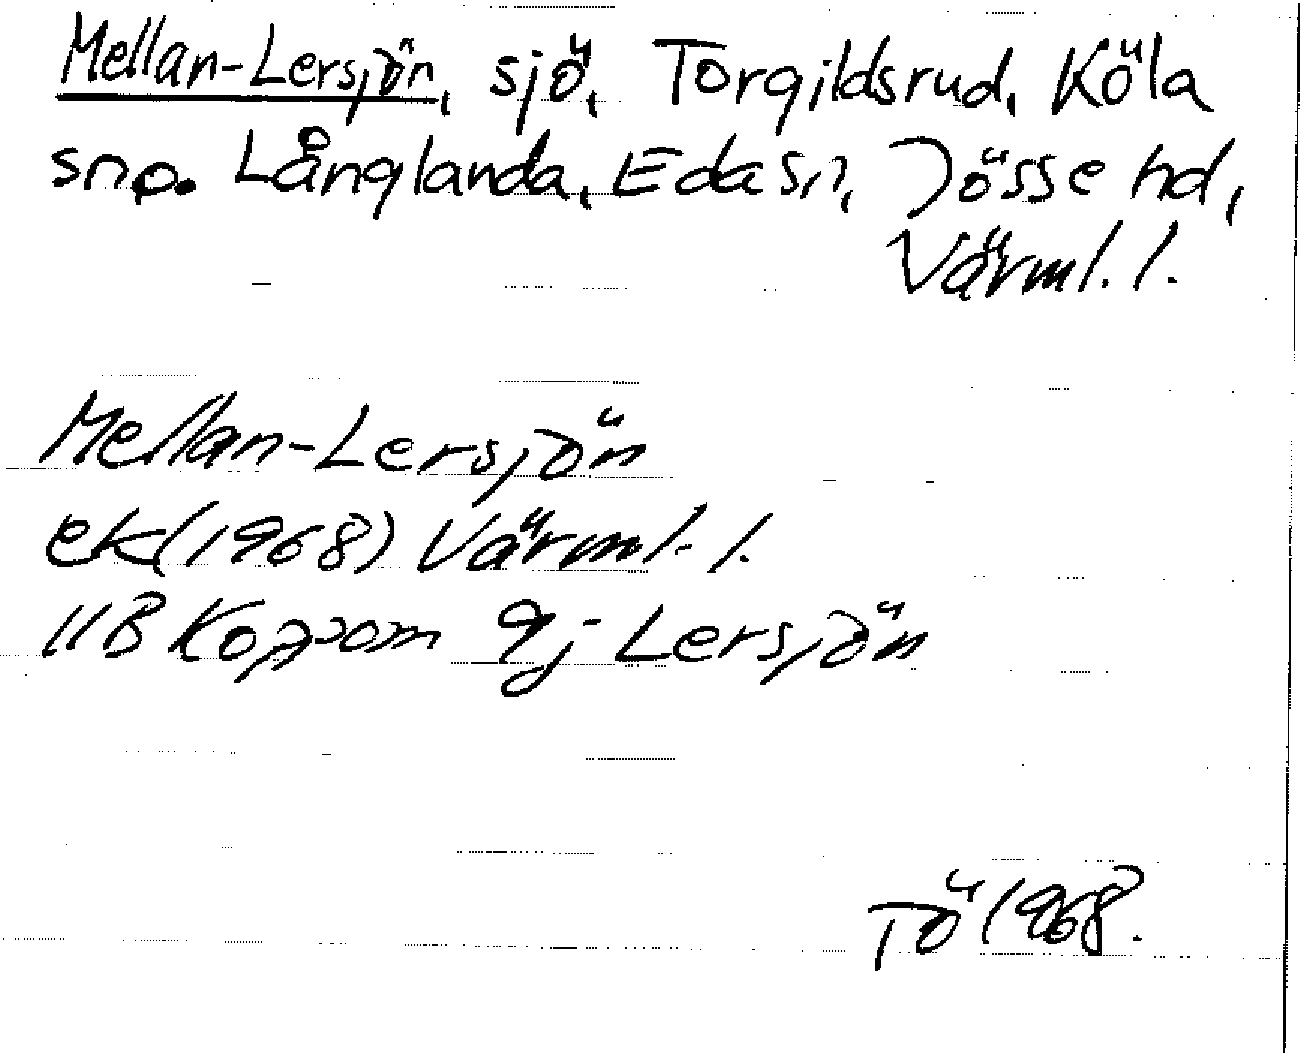 Mellan-Lersjön, sjö, Torgildsrud, Köla
snp. Långlanda, Eda sn, Jösse hd,
Värml. l.
Mellan-Lersjön
ek (1968) Värml. l.
11B Koppom 9j Lersjön
TÖ 1968.